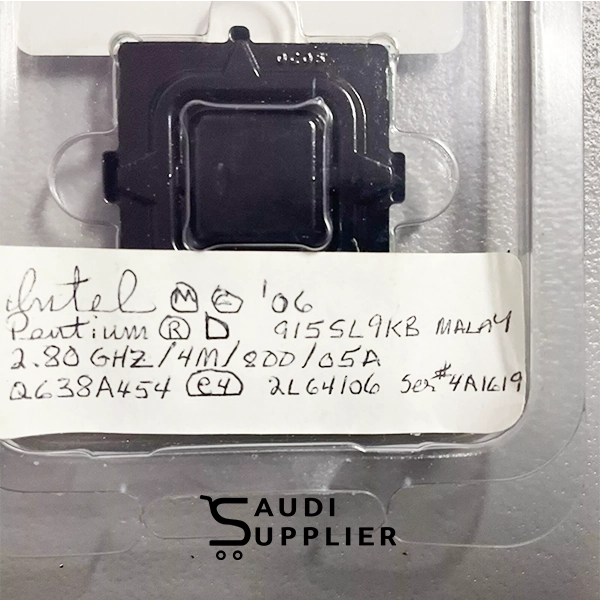 Intel Ⓜ Ⓒ '06
Pentium Ⓡ D 915 SL9KB MALAY
2.80 GHZ/4M/800/05A
Q638A454 e4 2L64106 Ser# 4A1619
SAUDI
SUPPLIER